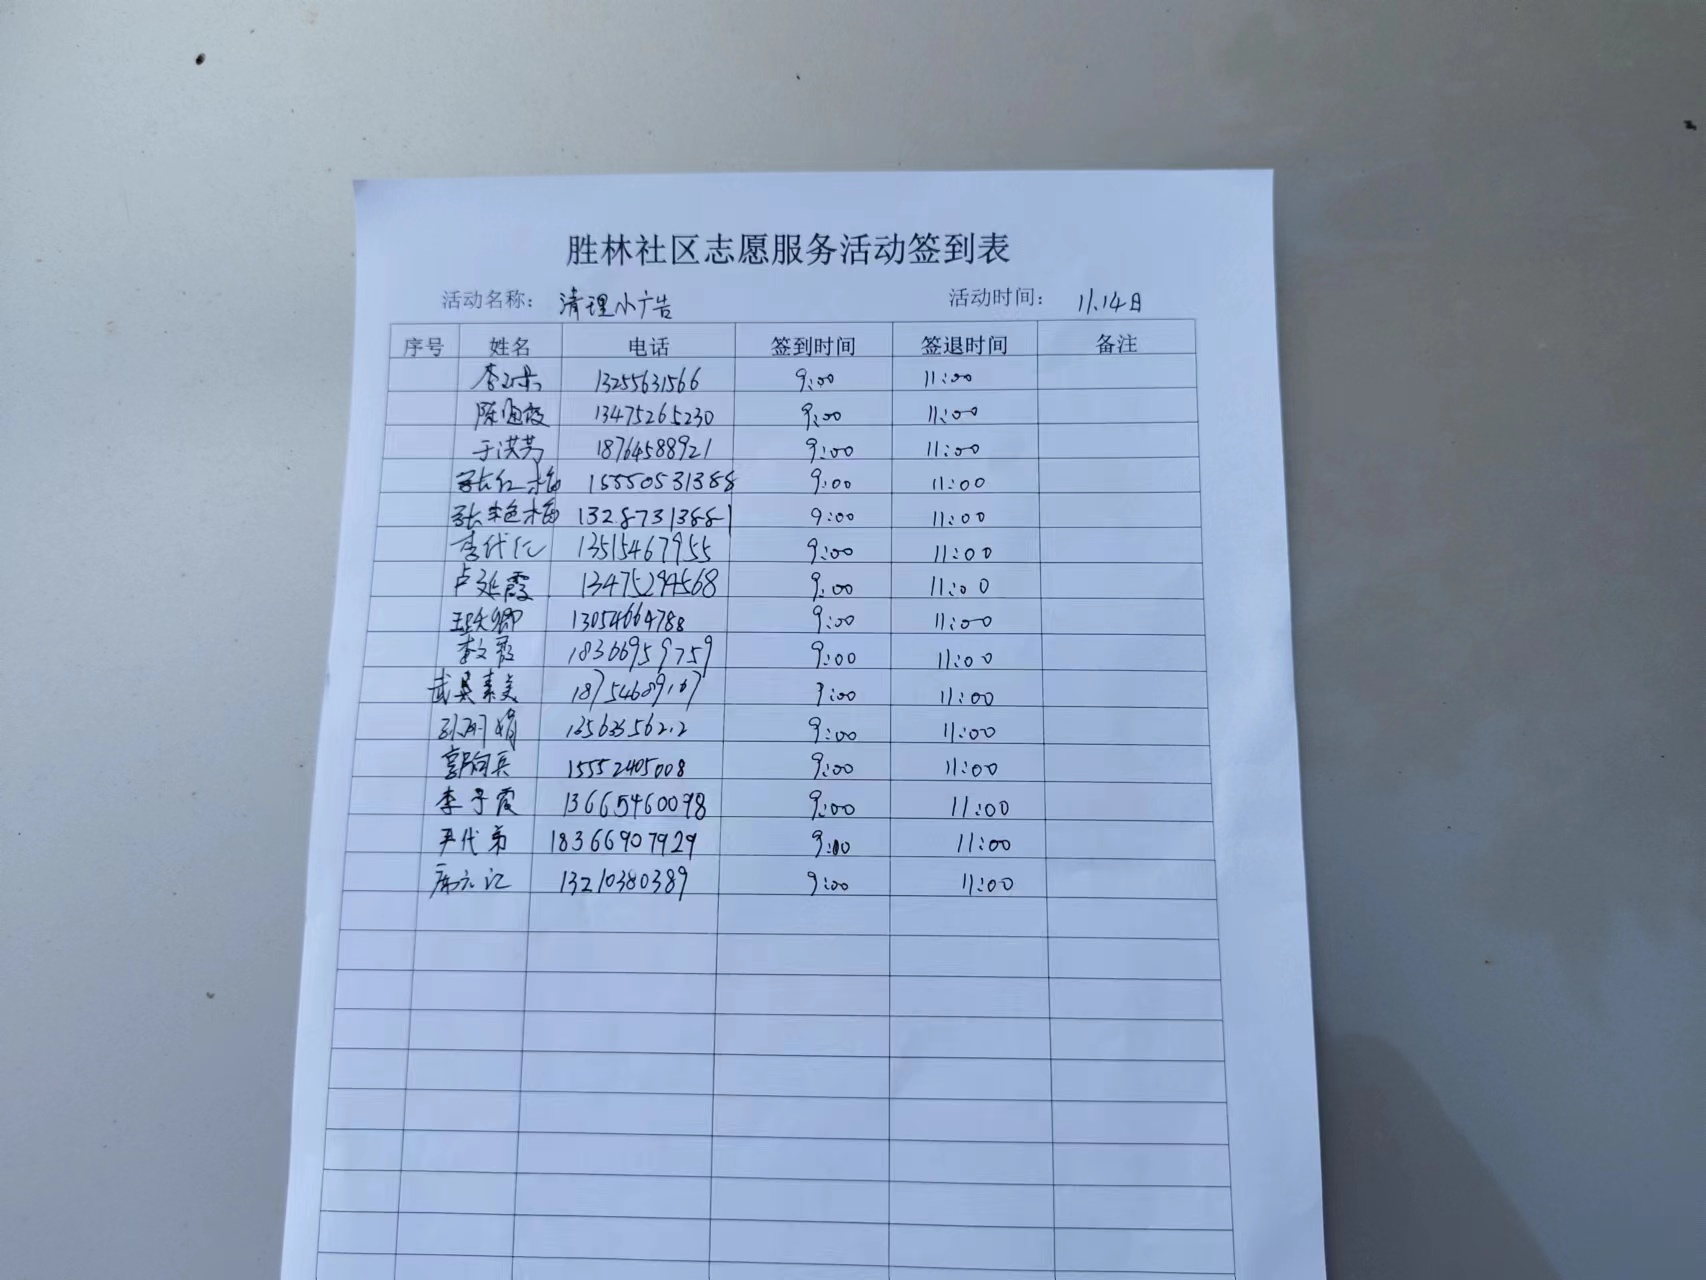 胜林社区志愿服务活动签到表
活动名称： 清理小广告 活动时间： 11.14日
序号 姓名 电话 签到时间 签退时间 备注
13255631566 9:00 11:00
陈迎霞 13475265230 9:00 11:00
于洪芳 18764588921 9:00 11:00
张红梅 15550531388 9:00 11:00
张艳梅 13287313881 9:00 11:00
李代仁 13515467955 9:00 11:00
卢延霞 13475294568 9:00 11:00
13054664788 9:00 11:00
李文霞 18366959759 9:00 11:00
武景素美 18754689167 9:00 11:00
孙丽娟 9:00 11:00
郭向兵 15552405008 9:00 11:00
李子霞 13665460098 9:00 11:00
尹代弟 18366907929 9:00 11:00
13210380389 9:00 11:00